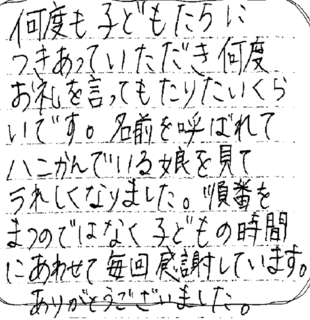 何度も子どもたちに
つきあっていただき何度
お礼を言ってもたりたいくら
いです。名前を呼ばれて
ハニかんでいる娘を見て
うれしくなりました。順番を
まつのではなく子どもの時間
にあわせて毎回感謝しています。
ありがとうございました。